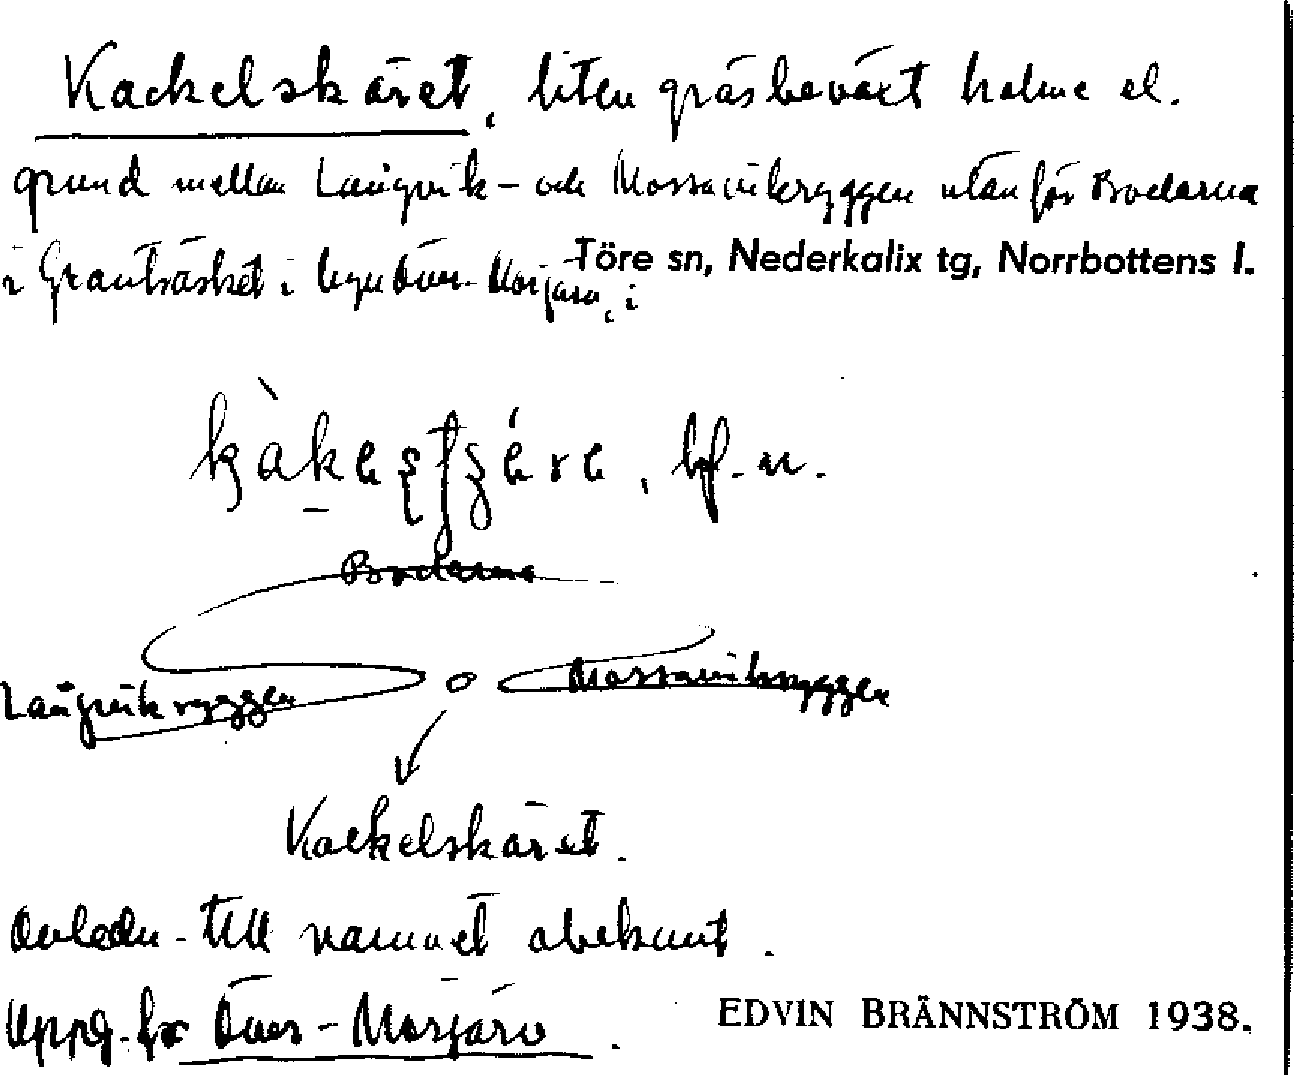 Kackelskäret, liten gräsbeväxt holme el.
grund mellan Långvik- och Mossavikryggen utanför Bodarna
i Granträsket i byn Över-Morjärv, i Töre sn, Nederkalix tg, Norrbottens l.
bf. n.
Bodarna
Långvikryggen Mossavikryggen
Kackelskäret.
Anledn. till namnet obekant.
Uppg. fr Över-Morjärv.
EDVIN BRÄNNSTRÖM 1938.